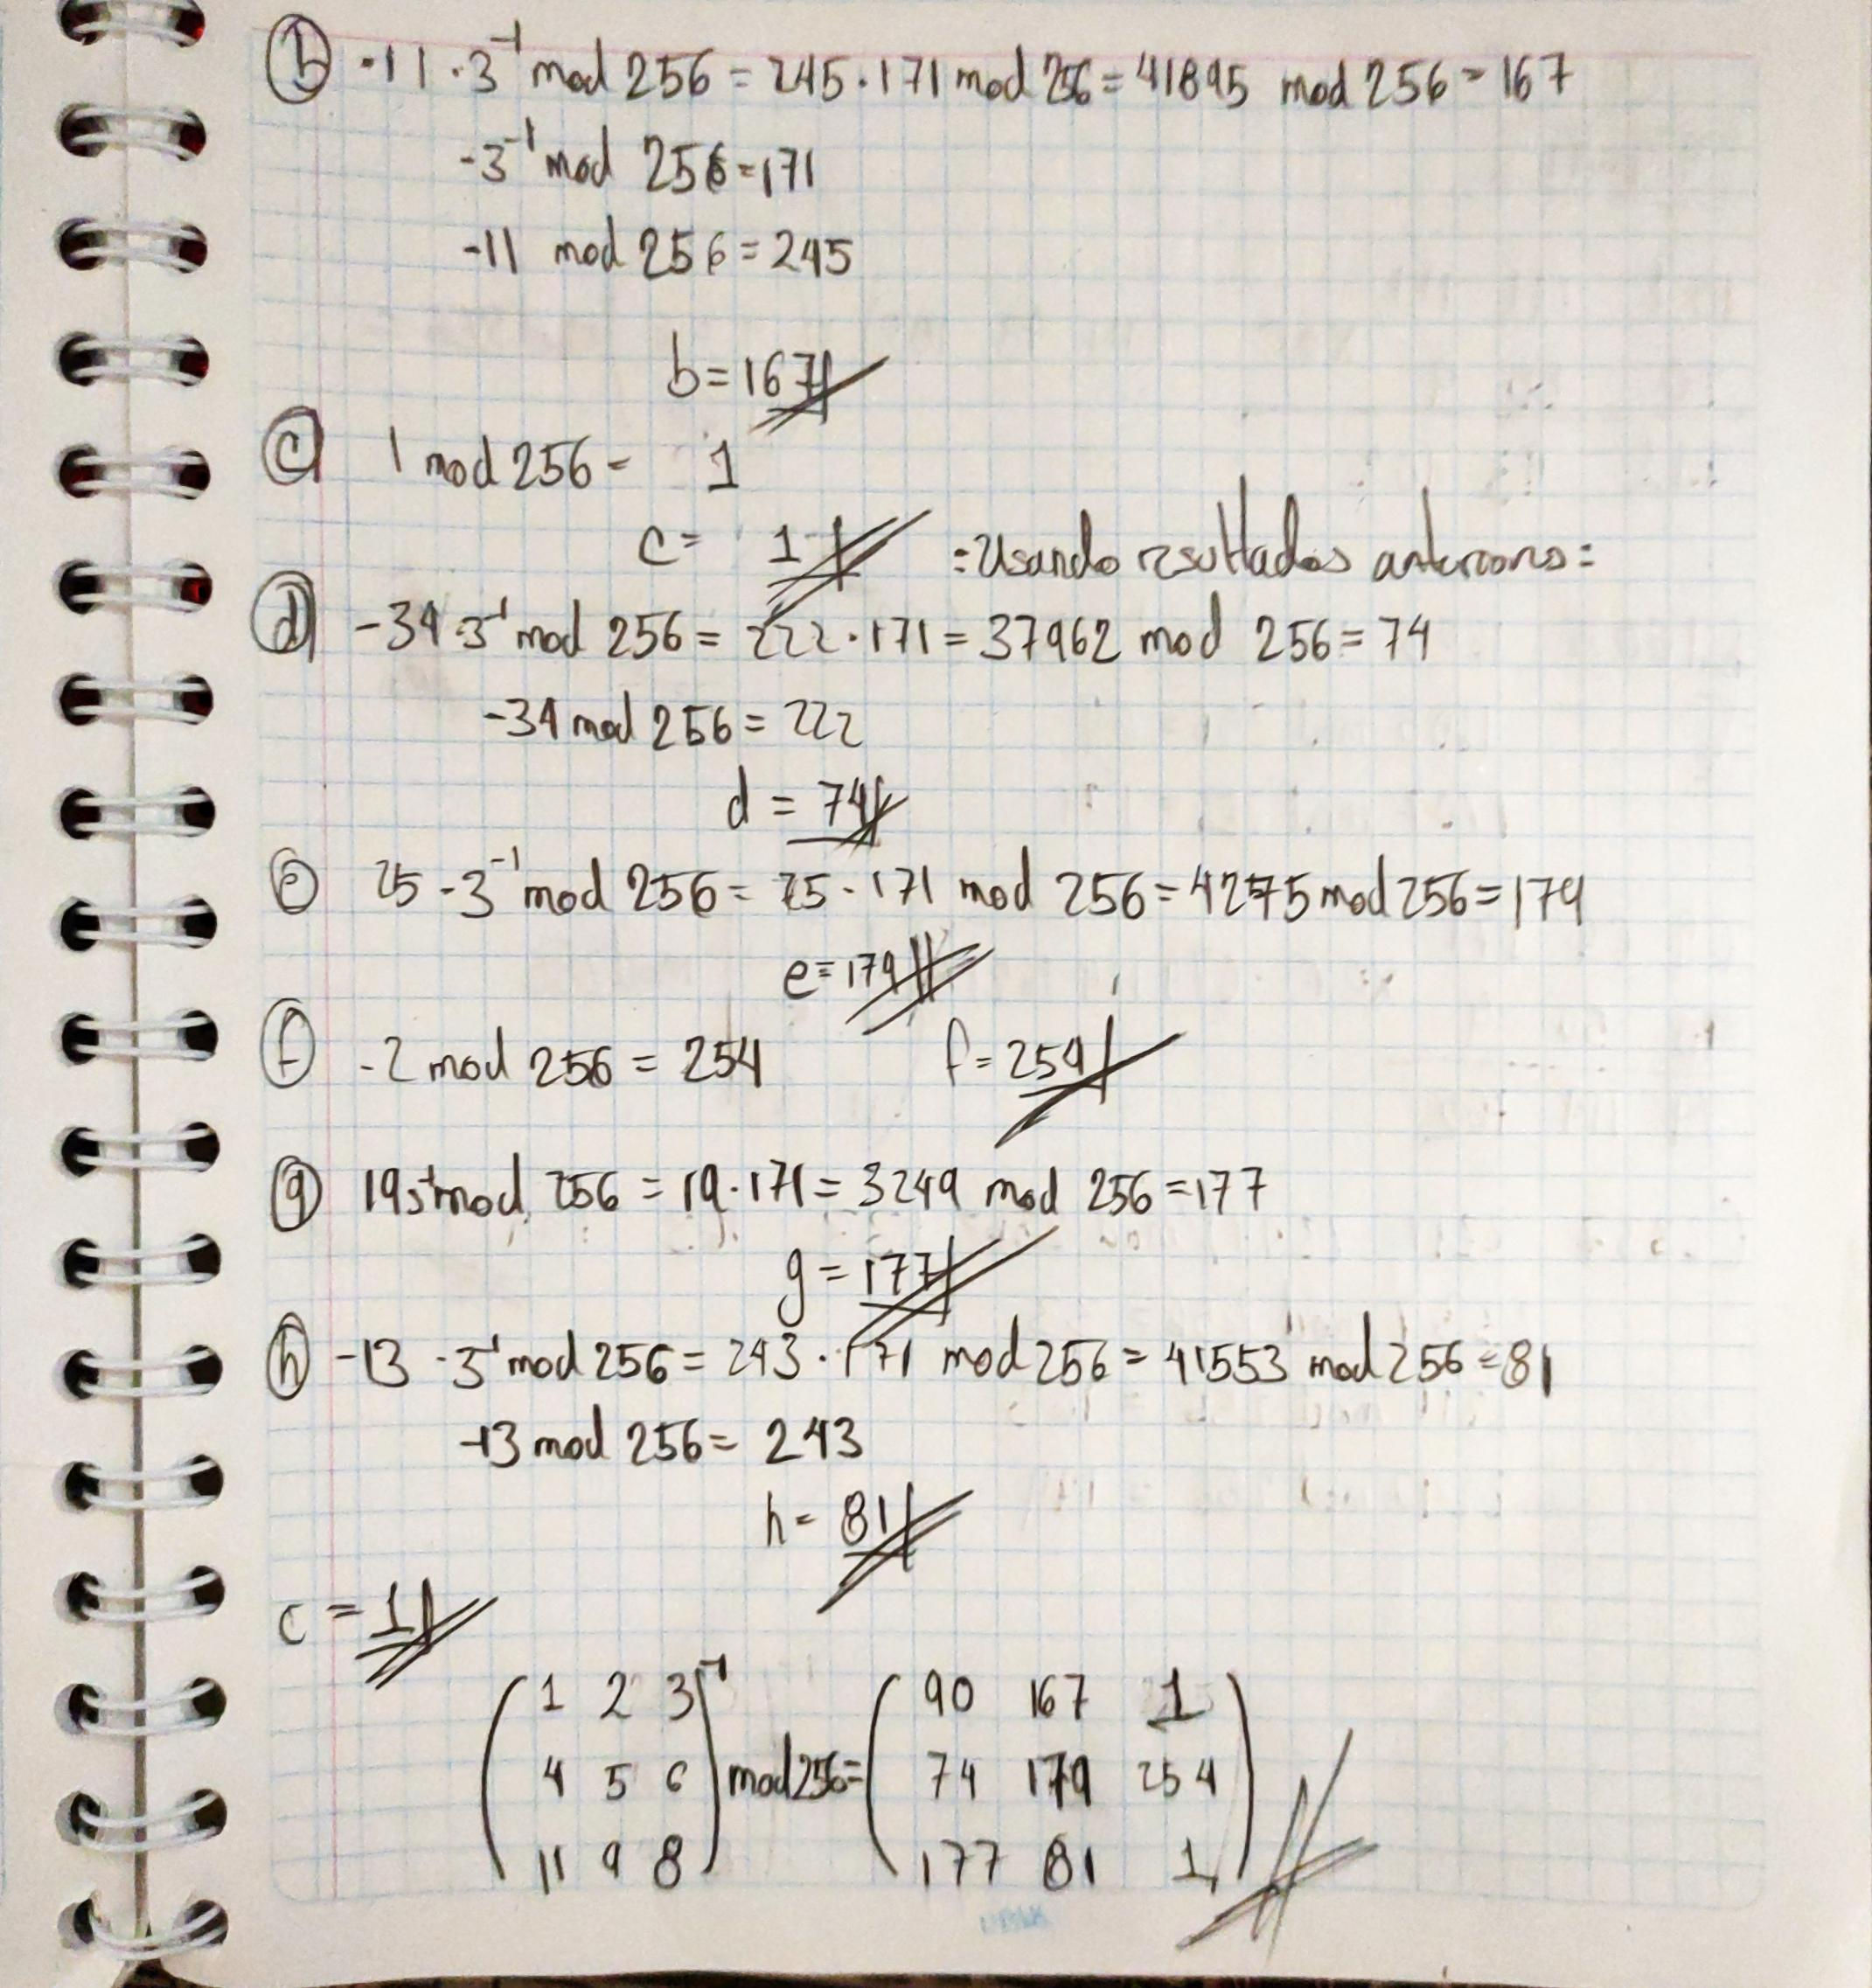 ⓑ -11 · 3⁻¹ mod 256 = 245 · 171 mod 256 = 41895 mod 256 = 167
-3⁻¹ mod 256 = 171
-11 mod 256 = 245
b = 167
ⓒ 1 mod 256 = 1
c = 1 =Usando resultados anteriores=
ⓓ -34 · 3⁻¹ mod 256 = 222 · 171 = 37962 mod 256 = 74
-34 mod 256 = 222
d = 74
ⓔ 25 · 3⁻¹ mod 256 = 25 · 171 mod 256 = 4275 mod 256 = 179
e = 179
ⓕ -2 mod 256 = 254 f = 254
ⓖ 19 3⁻¹ mod 256 = 19 · 171 = 3249 mod 256 = 177
g = 177
ⓗ -13 · 3⁻¹ mod 256 = 243 · 171 mod 256 = 41553 mod 256 = 81
-13 mod 256 = 243
h = 81
c = 1
( 1 2 3 )⁻¹ ( 90 167 1 )
( 4 5 6 ) mod 256 = ( 74 179 254 )
( 11 9 8 ) ( 177 81 1 )